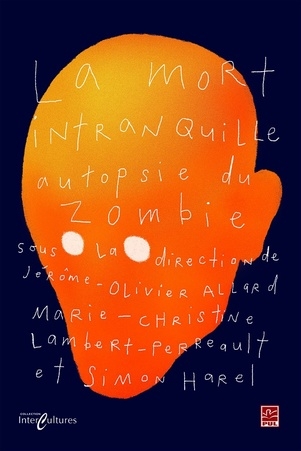 La mort
intranquille
autopsie du
zombie
sous la direction de
Jérôme-Olivier Allard
Marie-Christine
Lambert-Perreault
et Simon Harel
COLLECTION
InterCultures
PUL